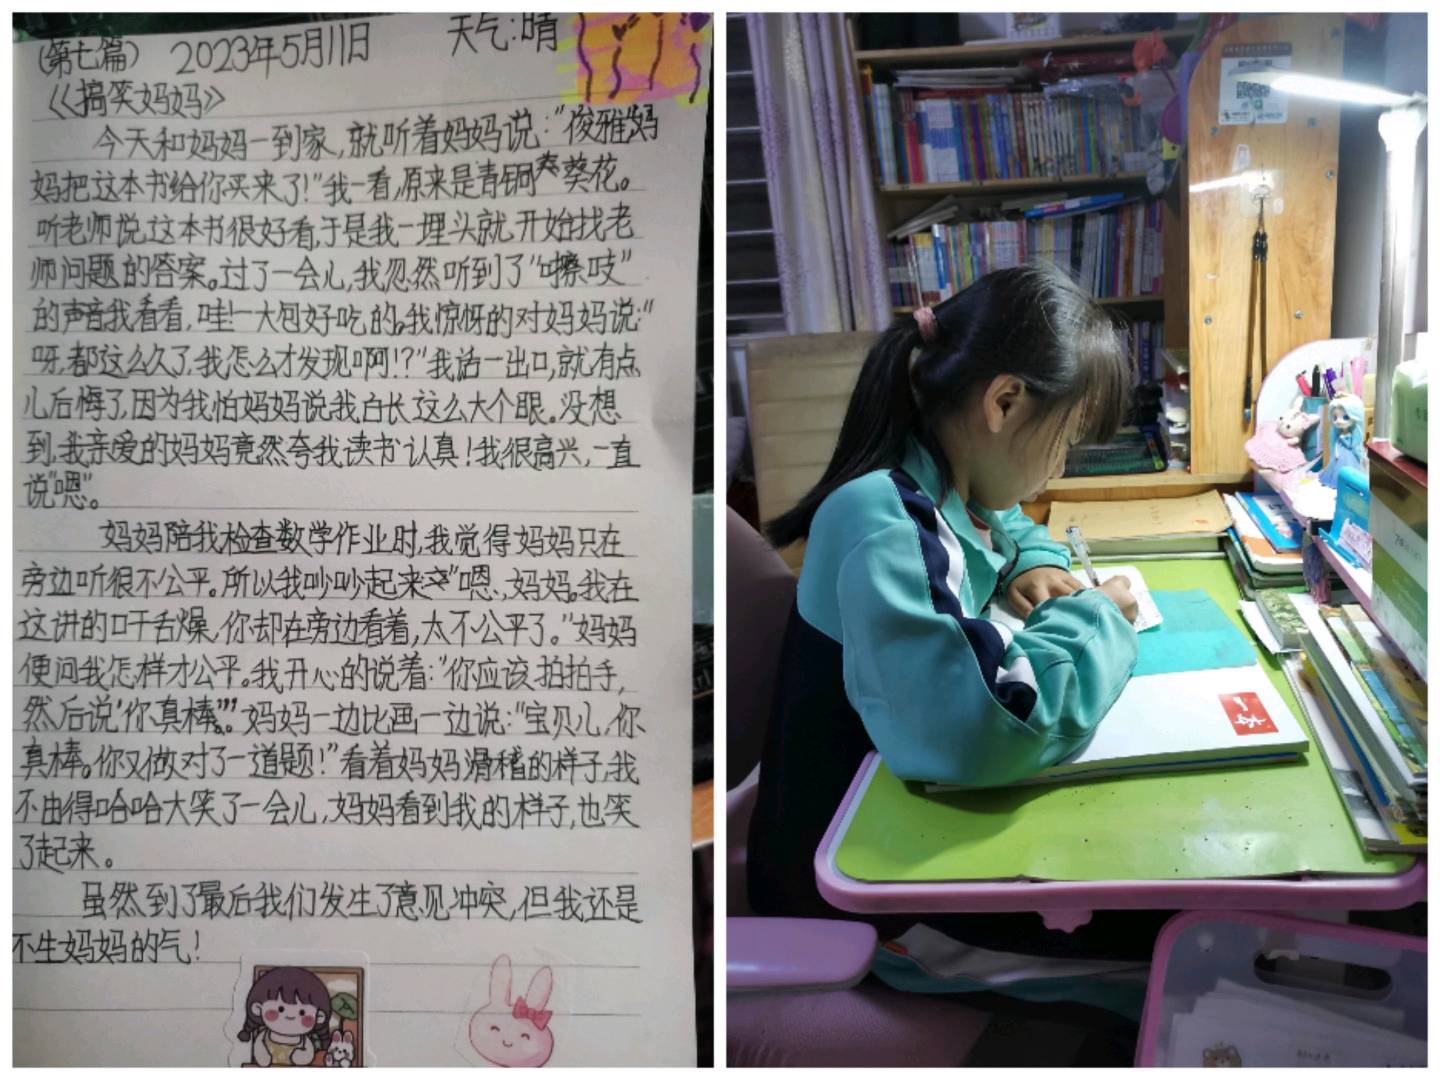 (第七篇) 2023年5月11日 天气:晴
《搞笑妈妈》
今天和妈妈一到家,就听着妈妈说:“俊雅妈
妈把这本书给你买来了!”我一看,原来是青铜葵花。
听老师说这本书很好看,于是我一埋头就开始找老
师问题的答案。过了一会儿,我忽然听到了“嚓吱”
的声音我看看,哇!一大包好吃的。我惊讶的对妈妈说:“
呀,都这么久了,我怎么才发现啊!?”我话一出口,就有点
儿后悔了,因为我怕妈妈说我白长这么大个眼。没想
到,我亲爱的妈妈竟然夸我读书认真!我很高兴,一直
说“嗯”。
妈妈陪我检查数学作业时,我觉得妈妈只在
旁边听很不公平。所以我吵吵起来“嗯,妈妈。我在
这讲的口干舌燥,你却在旁边看着,太不公平了。”妈妈
便问我怎样才公平。我开心的说着:“你应该拍拍手,
然后说‘你真棒’。”妈妈一边比画一边说:“宝贝儿,你
真棒。你又做对了一道题!”看着妈妈滑稽的样子,我
不由得哈哈大笑了一会儿,妈妈看到我的样子,也笑
了起来。
虽然到了最后我们发生了意见冲突,但我还是
不生妈妈的气!
一本